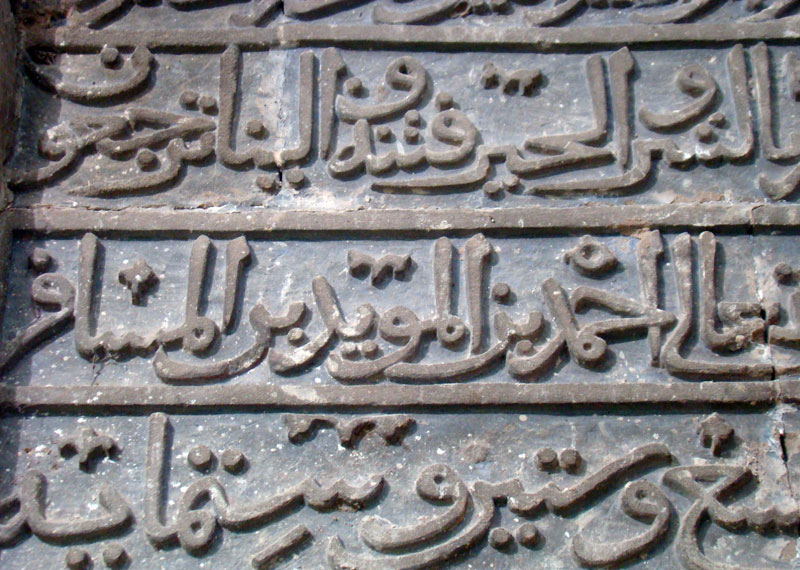 بالشر والخير فتنة والينا ترجعون
احمد بن المويد بن المسافر
وستين وستمايه